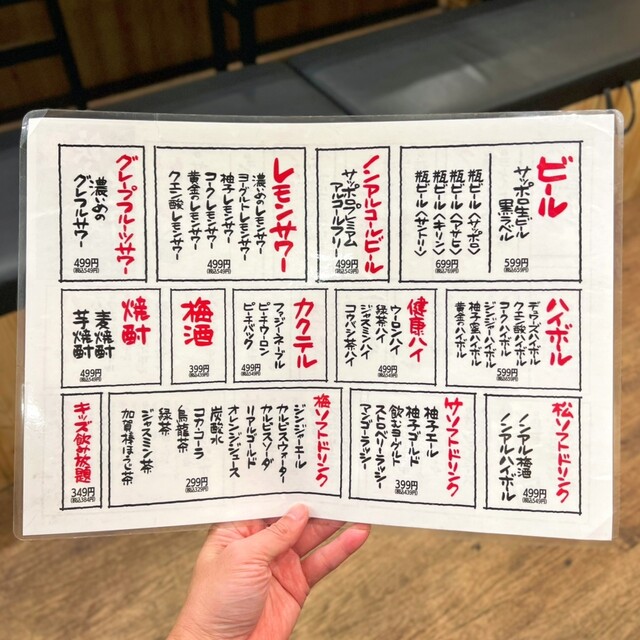 ビール
サッポロ生ビール
黒ラベル
599円
(税込659円)
瓶ビール〈サッポロ〉
瓶ビール〈アサヒ〉
瓶ビール〈キリン〉
瓶ビール〈サントリー〉
699円
(税込769円)
ノンアルコールビール
サッポロプレミアム
アルコールフリー
499円
(税込549円)
レモンサワー
濃いめのレモンサワー
ヨーグルトレモンサワー
柚子レモンサワー
コークレモンサワー
黄金のレモンサワー
クエン酸レモンサワー
499円
(税込549円)
グレープフルーツサワー
濃いめの
グレフルサワー
499円
(税込549円)
ハイボール
デュワーズハイボール
クエン酸ハイボール
コークハイボール
ジンジャーハイボール
柚子蜜ハイボール
黄金のハイボール
599円
(税込659円)
健康ハイ
ウーロンハイ
緑茶ハイ
ジャスミンハイ
コウバシ茶ハイ
499円
(税込549円)
カクテル
ファジーネーブル
ピーチウーロン
ピーチバック
499円
(税込549円)
梅酒
399円
(税込439円)
焼酎
麦焼酎
芋焼酎
499円
(税込549円)
松ソフトドリンク
ノンアル梅酒
ノンアルハイボール
499円
(税込549円)
竹ソフトドリンク
柚子エール
柚子ゴールド
飲むヨーグルト
ストロベリーラッシー
マンゴーラッシー
399円
(税込439円)
梅ソフトドリンク
ジンジャーエール
カルピスウォーター
カルピスソーダ
リアルゴールド
オレンジジュース
炭酸水
コカ・コーラ
烏龍茶
緑茶
ジャスミン茶
加賀棒ほうじ茶
299円
(税込329円)
キッズ飲み放題
349円
(税込384円)